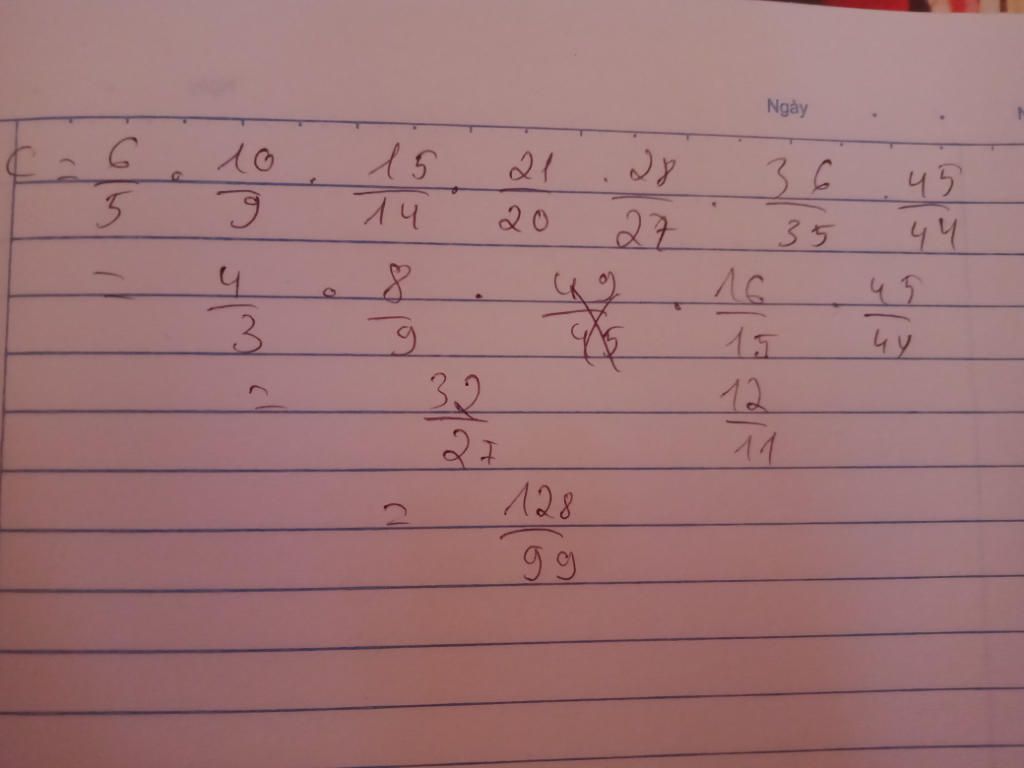 Ngày
C = 6/5 . 10/9 . 15/14 . 21/20 . 28/27 . 36/35 . 45/44
= 4/3 . 8/9 . 49/45 . 16/15 . 45/44
= 32/27 12/11
= 128/99